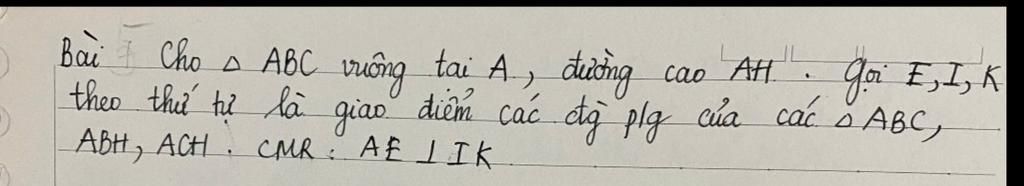 Bài 7 Cho △ ABC vuông tai A, đường cao AH. Gọi E, I, K
theo thứ tự là giao điểm các đg p/g của các △ ABC,
ABH, ACH. CMR: AE ⊥ IK